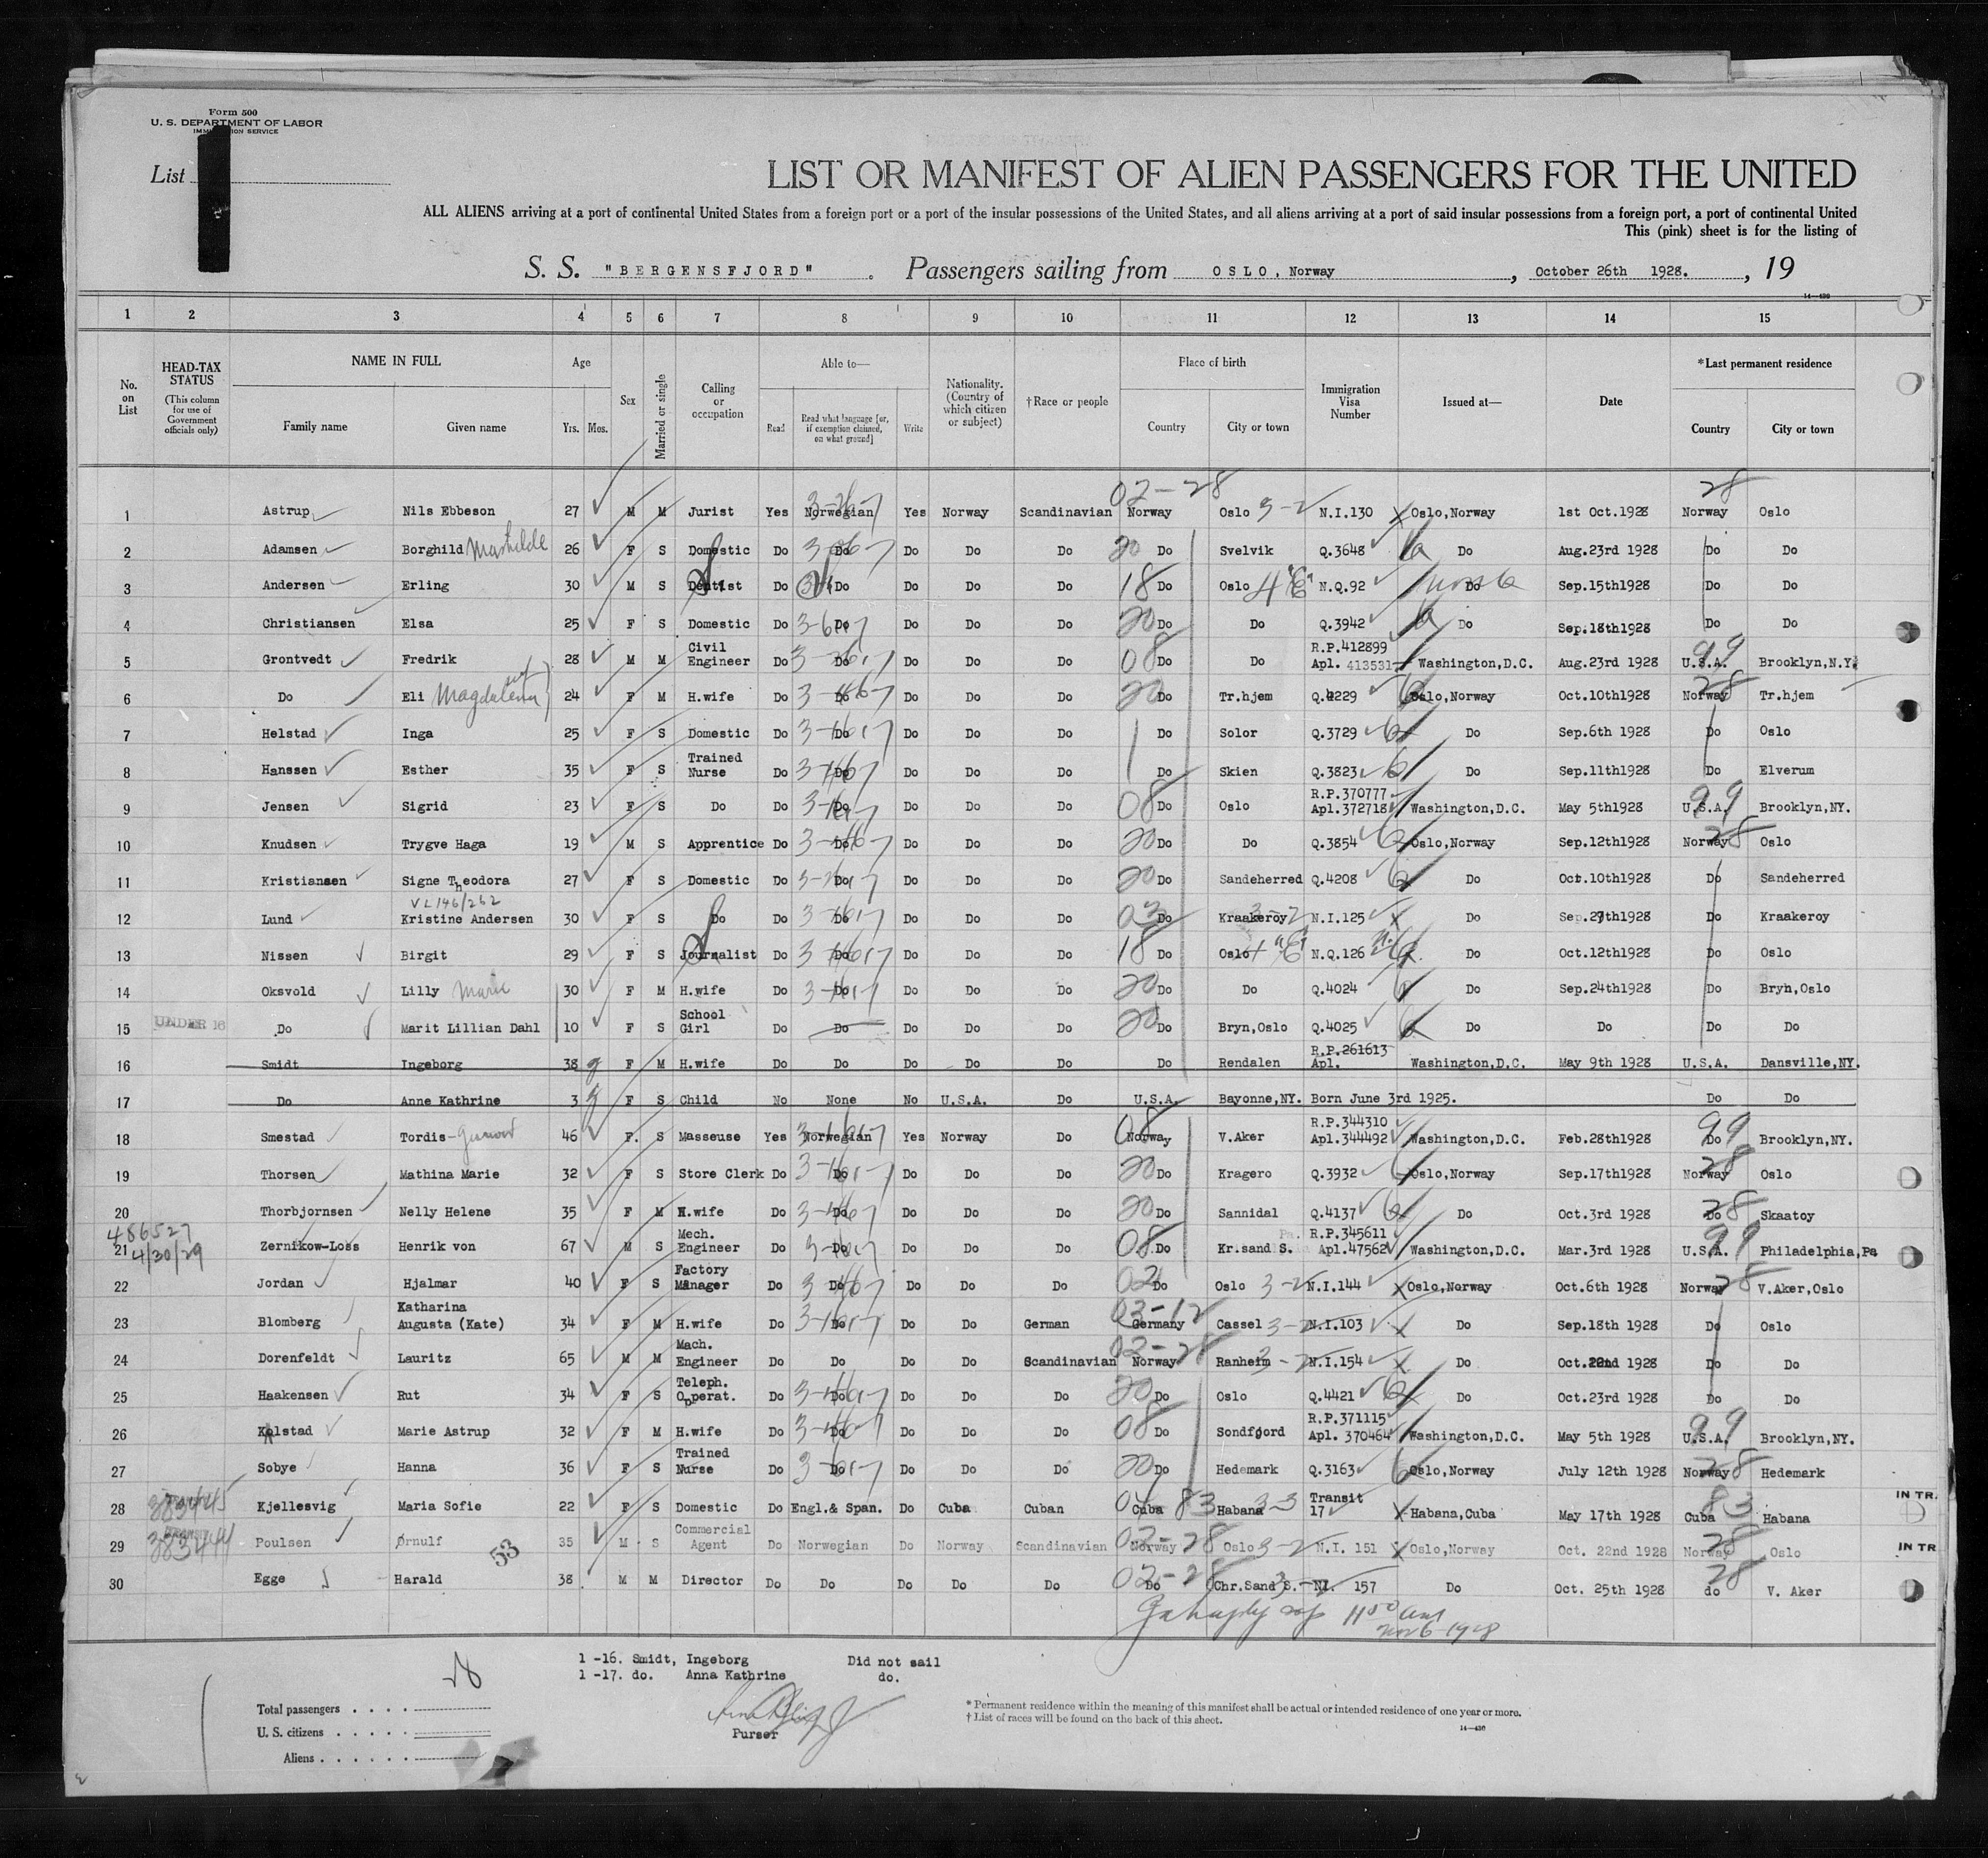 Form 500
U. S. DEPARTMENT OF LABOR
List
LIST OR MANIFEST OF ALIEN PASSENGERS FOR THE UNITED
ALL ALIENS arriving at a port of continental United States from a foreign port or a port of the insular possessions of the United States, and all aliens arriving at a port of said insular possessions from a foreign port, a port of continental United
This (pink) sheet is for the listing of
S. S. "BERGENSFJORD" . Passengers sailing from OSLO, Norway , October 26th 1928. , 19
14—430
1 2 3 4 5 6 7 8 9 10 11 12 13 14 15
No. on List HEAD-TAX STATUS (This column for use of Government officials only) NAME IN FULL Family name Given name Age Yrs. Mos. Sex Married or single Calling or occupation Able to— Read Read what language [or, if exemption claimed, on what ground] Write Nationality. (Country of which citizen or subject) †Race or people Place of birth Country City or town Immigration Visa Number Issued at— Date *Last permanent residence Country City or town
02-28 28
1 Astrup Nils Ebbeson 27 M M Jurist Yes Norwegian Yes Norway Scandinavian Norway Oslo 3-2 N.I.130 Oslo,Norway 1st Oct.1928 Norway Oslo
2 Adamsen Borghild 26 F S Domestic Do Do Do Do Do 20 Do Svelvik Q.3648 Do Aug.23rd 1928 Do Do
3 Andersen Erling 30 M S Dentist Do Do Do Do Do 18 Do Oslo N.Q.92 Do Sep.15th1928 Do Do
4 Christiansen Elsa 25 F S Domestic Do Do Do Do Do 20 Do Do Q.3942 Do Sep.18th1928 Do Do
5 Grontvedt Fredrik 28 M M Civil Engineer Do Do Do Do Do 08 Do Do R.P.412899 Apl. 413531 Washington,D.C. Aug.23rd 1928 99 U.S.A. Brooklyn,N.Y.
6 Do Eli Magdalena 24 F M H.wife Do Do Do Do Do 20 Do Tr.hjem Q.4229 Oslo,Norway Oct.10th1928 28 Norway Tr.hjem
7 Helstad Inga 25 F S Domestic Do Do Do Do Do Do Solor Q.3729 Do Sep.6th 1928 Do Oslo
8 Hanssen Esther 35 F S Trained Nurse Do Do Do Do Do Do Skien Q.3823 Do Sep.11th1928 Do Elverum
9 Jensen Sigrid 23 F S Do Do Do Do Do Do 08 Do Oslo R.P.370777 Apl.372718 Washington,D.C. May 5th1928 99 U.S.A. Brooklyn,NY.
10 Knudsen Trygve Haga 19 M S Apprentice Do Do Do Do Do 20 Do Do Q.3854 Oslo,Norway Sep.12th1928 28 Norway Oslo
11 Kristiansen Signe Theodora 27 F S Domestic Do Do Do Do Do 20 Do Sandeherred Q.4208 Do Oct.10th1928 Do Sandeherred
VL146/262
12 Lund Kristine Andersen 30 F S Do Do Do Do Do Do 03 Do Kraakeroy 3-2 N.I.125 Do Sep.27th1928 Do Kraakeroy
13 Nissen Birgit 29 F S Journalist Do Do Do Do Do 18 Do Oslo N.Q.126 Do Oct.12th1928 Do Oslo
14 Oksvold Lilly Marie 30 F M H.wife Do Do Do Do Do 20 Do Do Q.4024 Do Sep.24th1928 Do Bryn,Oslo
15 UNDER 16 Do Marit Lillian Dahl 10 F S School Girl Do Do Do Do Do 20 Do Bryn,Oslo Q.4025 Do Do Do Do
16 Smidt Ingeborg 38 F M H.wife Do Do Do Do Do Do Rendalen R.P.261613 Apl. Washington,D.C. May 9th 1928 U.S.A. Dansville,NY.
17 Do Anne Kathrine 3 F S Child No None No U.S.A. Do U.S.A. Bayonne,NY. Born June 3rd 1925. Do Do
18 Smestad Tordis 46 F. S Masseuse Yes Norwegian Yes Norway Do 08 Norway V.Aker R.P.344310 Apl.344492 Washington,D.C. Feb.28th1928 99 Do Brooklyn,NY.
19 Thorsen Mathina Marie 32 F S Store Clerk Do Do Do Do Do 20 Do Kragero Q.3932 Oslo,Norway Sep.17th1928 28 Norway Oslo
20 Thorbjornsen Nelly Helene 35 F M H.wife Do Do Do Do Do 20 Do Sannidal Q.4137 Do Oct.3rd 1928 28 Do Skaatoy
486527
4/30/29
21 Zernikow-Loss Henrik von 67 M S Mech. Engineer Do Do Do Do Do 08 Do Kr.sand S. R.P.345611 Apl.47562 Washington,D.C. Mar.3rd 1928 99 U.S.A. Philadelphia,Pa
22 Jordan Hjalmar 40 F S Factory Manager Do Do Do Do Do 02 Do Oslo 3-2 N.I.144 Oslo,Norway Oct.6th 1928 28 Norway V.Aker,Oslo
23 Blomberg Katharina Augusta (Kate) 34 F M H.wife Do Do Do Do German 03-12 Germany Cassel 3-2 N.I.103 Do Sep.18th 1928 Do Oslo
24 Dorenfeldt Lauritz 65 M M Mach. Engineer Do Do Do Do Scandinavian 02-28 Norway Ranheim 3-2 N.I.154 Do Oct.22nd 1928 Do Do
25 Haakensen Rut 34 F S Teleph. Operat. Do Do Do Do Do 20 Do Oslo Q.4421 Do Oct.23rd 1928 Do Do
26 Kolstad Marie Astrup 32 F M H.wife Do Do Do Do Do 08 Do Sondfjord R.P.371115 Apl. 370464 Washington,D.C. May 5th 1928 99 U.S.A. Brooklyn,NY.
27 Sobye Hanna 36 F S Trained Nurse Do Do Do Do Do 20 Do Hedemark Q.3163 Oslo,Norway July 12th 1928 28 Norway Hedemark
28 Kjellesvig Maria Sofie 22 F S Domestic Do Engl.& Span. Do Cuba Cuban Cuba 83 Habana 3-3 Transit 17 Habana,Cuba May 17th 1928 83 Cuba Habana IN TR.
29 Poulsen Ørnulf 53 35 M S Commercial Agent Do Norwegian Do Norway Scandinavian 02-28 Norway Oslo 3-2 N.I. 151 Oslo,Norway Oct. 22nd 1928 28 Norway Oslo IN TR
30 Egge Harald 38 M M Director Do Do Do Do Do 02-28 Do Chr.Sand S. NI. 157 Do Oct. 25th 1928 28 do V. Aker
Nov 6-1928
1 -16. Smidt, Ingeborg Did not sail
1 -17. do. Anna Kathrine do.
28
Total passengers . . . .
U. S. citizens . . . . .
Aliens . . . . . .
Purser
* Permanent residence within the meaning of this manifest shall be actual or intended residence of one year or more.
† List of races will be found on the back of this sheet.
14—430